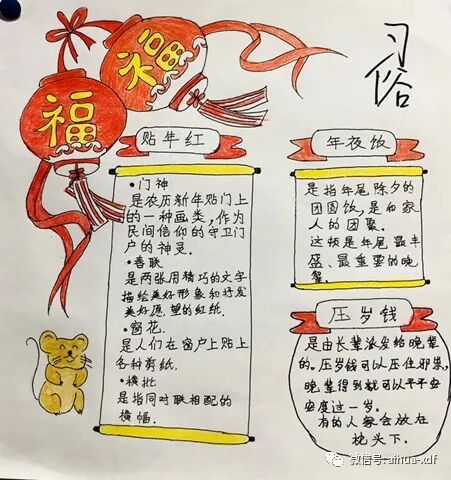 福
福
习
俗
贴年红
•门神
是农历新年贴门上
的一种画类,作为
民间信仰的守卫门
户的神灵.
•春联
是两张用精巧的文字
描绘美好形象和抒发
美好愿望的红纸.
•窗花.
是人们在窗户上贴上
各种剪纸.
•横批
是指同对联相配的
横幅.
年夜饭
是指年尾除夕的
团圆饭,是和家
人的团聚.
这顿是年尾最丰
盛、最重要的晚
餐.
压岁钱
是由长辈派发给晚辈
的。压岁钱可以压住邪祟,
晚辈得到就可以平平安
安度过一岁.
有的人家会放在
枕头下.
微信号: aihua-xdf